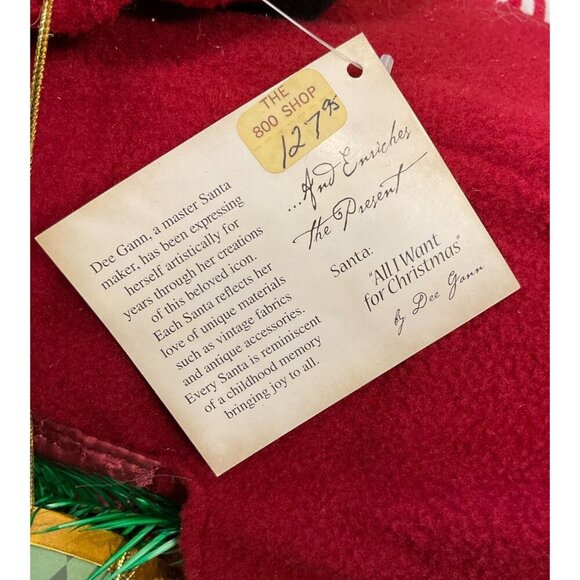 THE
800 SHOP
127 95
Dee Gann, a master Santa
maker, has been expressing
herself artistically for
years through her creations
of this beloved icon.
Each Santa reflects her
love of unique materials
such as vintage fabrics
and antique accessories.
Every Santa is reminiscent
of a childhood memory
bringing joy to all.
...And Enriches
the Present
Santa:
"All I Want
for Christmas"
by Dee Gann